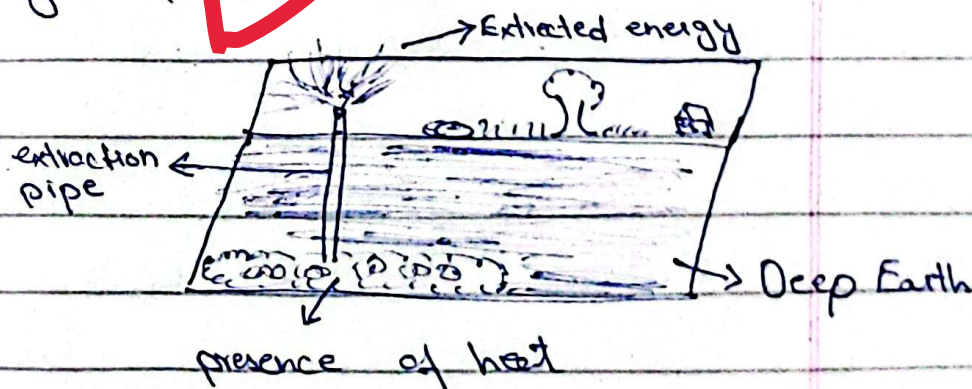 Extracted energy
extraction
pipe
Deep Earth
presence of heat